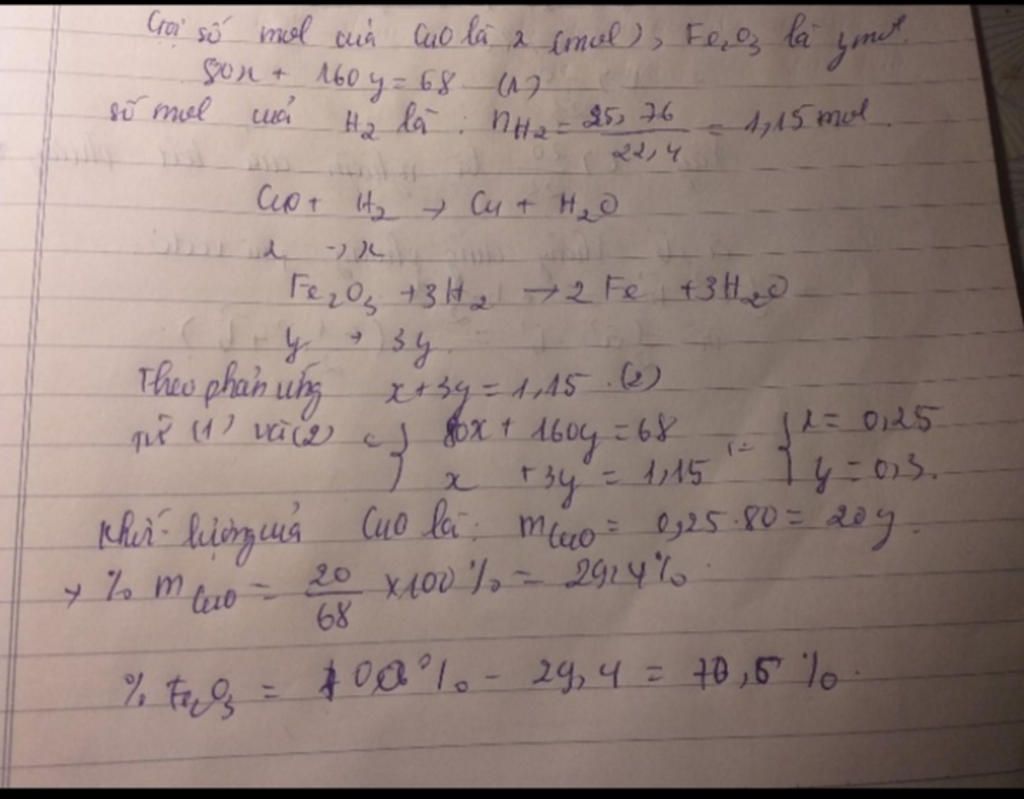 Gọi số mol của CuO là x (mol), Fe₂O₃ là y mol.
80x + 160y = 68 (1)
số mol của H₂ là : nH₂ = 25,76 / 22,4 = 1,15 mol.
CuO + H₂ → Cu + H₂O
x → x
Fe₂O₃ + 3H₂ → 2Fe + 3H₂O
y → 3y
Theo phản ứng x + 3y = 1,15 . (2)
Từ (1) và (2) { 80x + 160y = 68 { x = 0,25
x + 3y = 1,15 y = 0,3.
Khối lượng của CuO là : mCuO = 0,25 . 80 = 20g.
→ % mCuO = 20/68 × 100% = 29,4%.
% Fe₂O₃ = 100% - 29,4 = 70,5%.